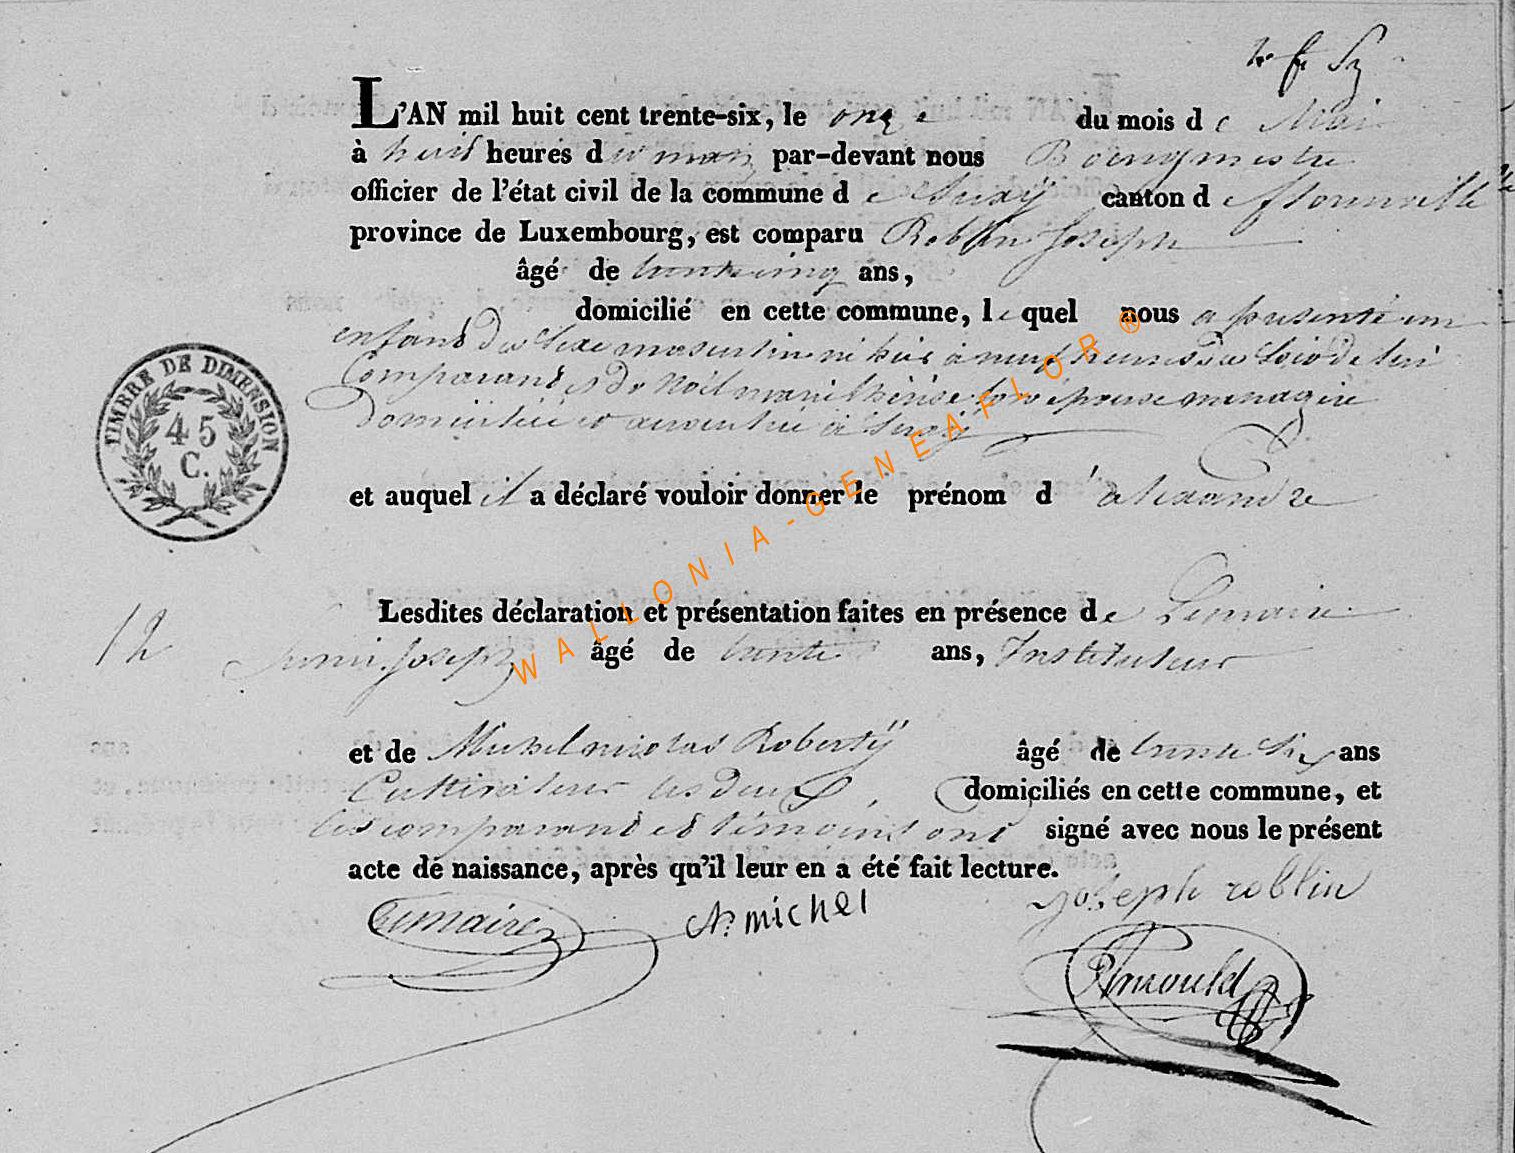 L'AN mil huit cent trente-six, le onze du mois de Mai
à huit heures du matin par-devant nous Bourgmestre
officier de l'état civil de la commune de Suxÿ canton de florenville
province de Luxembourg, est comparu Roblin Joseph
âgé de trente cinq ans,
domicilié en cette commune, lequel nous a présenté un
enfant du sexe masculin né hier à neuf heures du soir de lui
Comparant et de Noël marie thérèse son épouse ménagère
domiciliée et à Suxÿ
et auquel il a déclaré vouloir donner le prénom d'alexandre
TIMBRE DE DIMENSION
45
C.
Lesdites déclaration et présentation faites en présence de Lemaire
12 Joseph âgé de trente ans, Instituteur
et de Michel nicolas Robertÿ âgé de trente six ans
Cultivateur les deux domiciliés en cette commune, et
les comparant et témoins ont signé avec nous le présent
acte de naissance, après qu'il leur en a été fait lecture.
Lemaire N. michel joseph roblin
Arnould
WALLONIA-GENEAFLOR®